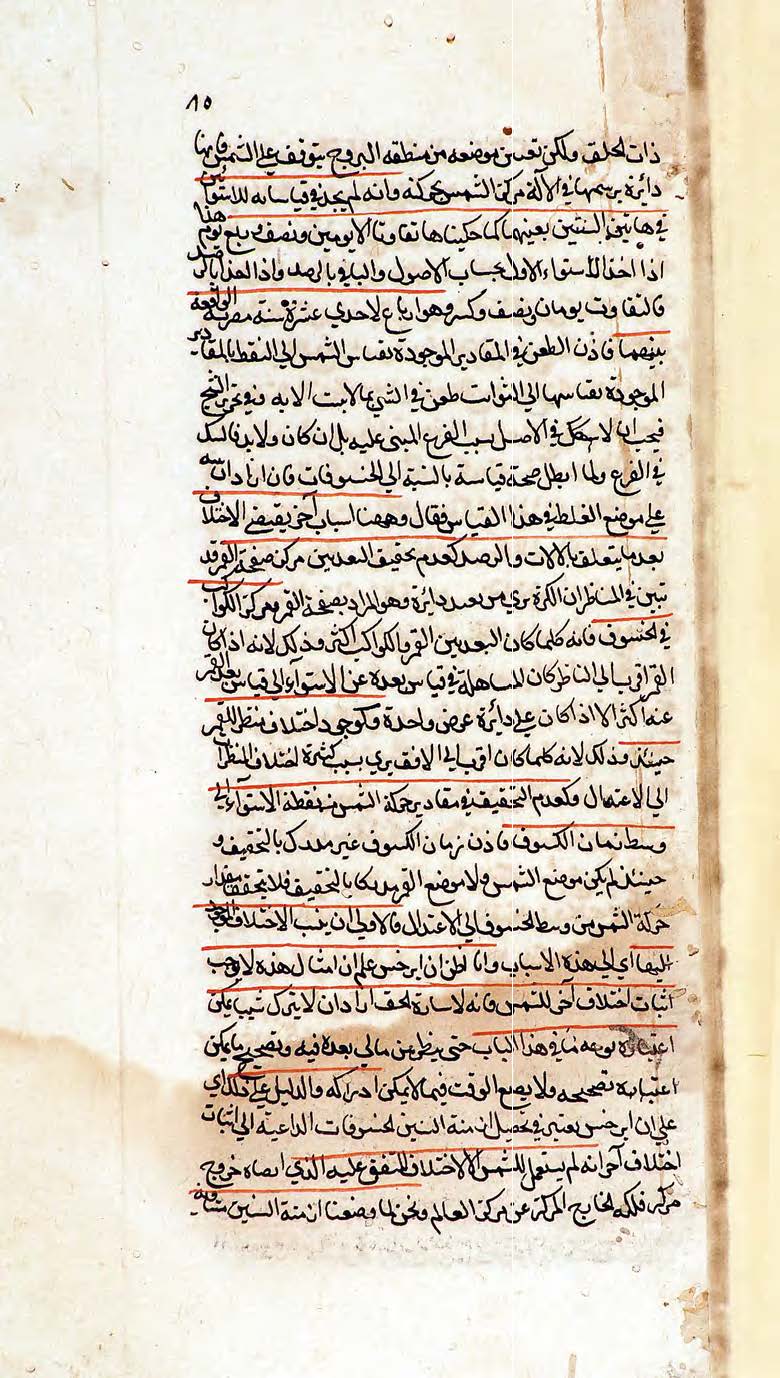 ٨٥
ذات الحلق ولكن تعيين موضعه من منطقه البروج يتوقف علي الشمس فانها
دائرة يرسمها في الآلة مركز الشمس بحركته وانه لم يجد في قياساته للاستوائين
في هاتين السنتين بعينهما كما حكيناها تفاوتا الا يومين ونصف وربع يوم هذا
اذا اخذ الاستواء الاول بحساب الاصول والباقي بالرصد واذا اخذا بالرصد
فالتفاوت يومان ونصف وكسر وهو ارباع لاحدي عشرة سنة مصرية الواقعة
بينهما فاذن الطعن في المقادير الموجودة بقياس الشمس الي النقط بالمقادير
الموجودة بقياسها الي الثوابت طعن في الشي بما لا يثبت الا به وفي تحرير
فيجب ان لا يشكك في الاصل بسبب الفرع المبني عليه بل ان كان ولابد فالشك
في الفرع ولما ابطل صحة قياسه بالنسبة الي الخسوفات فان اراد ان ينبه
علي موضع الغلط في هذا القياس فقال وههنا اسباب آخر يقتضي الاختلاف
بعد ما يتعلق بالالات والرصد كعدم تحقيق البعد بين مركز صفحة القمر قد
تبين في المناظر ان الكرة تري من بعيد دائرة وهو المراد بصفحة القمر ومركز الكواكب
في الخسوف فانه كلما كان البعد بين القمر والكواكب اكثر وذلك لانه اذا كان
القمر اقرب الي الناظر كان المساهلة في قياس بعده عن الاستواء الي قياس بعد القمر
عنه اكثر الا اذا كان علي دائرة عرض واحدة وكوجود اختلاف منظر للقمر
حينئذ وذلك لانه كلما كان اقرب الي الافق يري بسبب كثرة اختلاف المنظر
الي الاعتدال وكعدم التحقيق في مقادير حركة الشمس من نقطة الاستواء الي
وسط زمان الكسوف فاذن زمان الكسوف غير مدرك بالتحقيق و
حينئذ لم يكن موضع الشمس ولا موضع القمر مدركا بالتحقيق فلا يتحقق مقدار
حركة الشمس من وسط الخسوف الي الاعتدال فالاولي ان ينسب الاختلاف الموجود
اليها اي الي هذه الاسباب وانا اظن ان ابرخس علم ان امثال هذه لا يوجب
اثبات اختلاف آخر للشمس فانه لاسارة الحق اراد ان لا يترك شيا يمكن
اعتباره بوجه ما في هذا الباب حتي ينظر من ياتي بعده فيه وتصحيح ما يمكن
اعتباره تصحيحه ولا يضيع الوقت فيما لا يمكن ادراكه والدليل علي ذلك اي
علي ان ابرخس يعتبر في تحصيل ازمنة السنين الخسوفات الداعية الي اثبات
اختلاف آخر انه لم يستعمل للشمس الا الاختلاف المتفق عليه الذي اقتضاه خروج
مركز فلكه الخارج المركز عن مركز العالم ونحن لما وضعنا ازمنة السنين متساوية